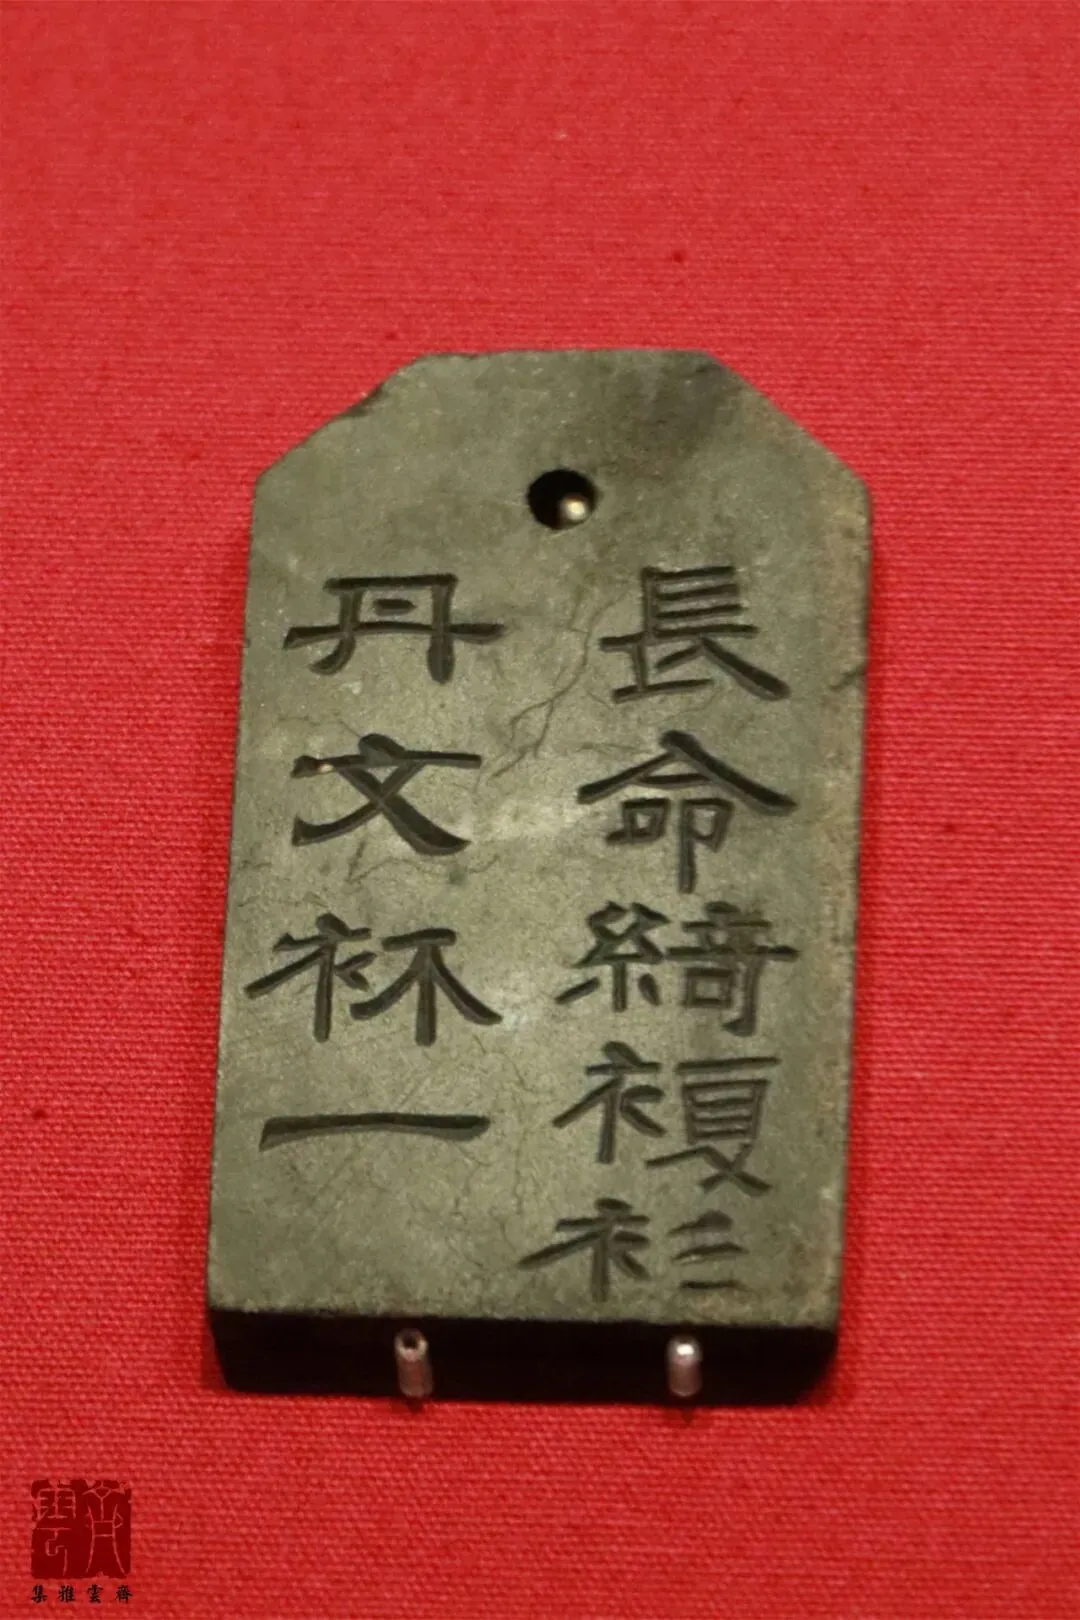 長命綺複衫
丹文袜一
集雅雲齊